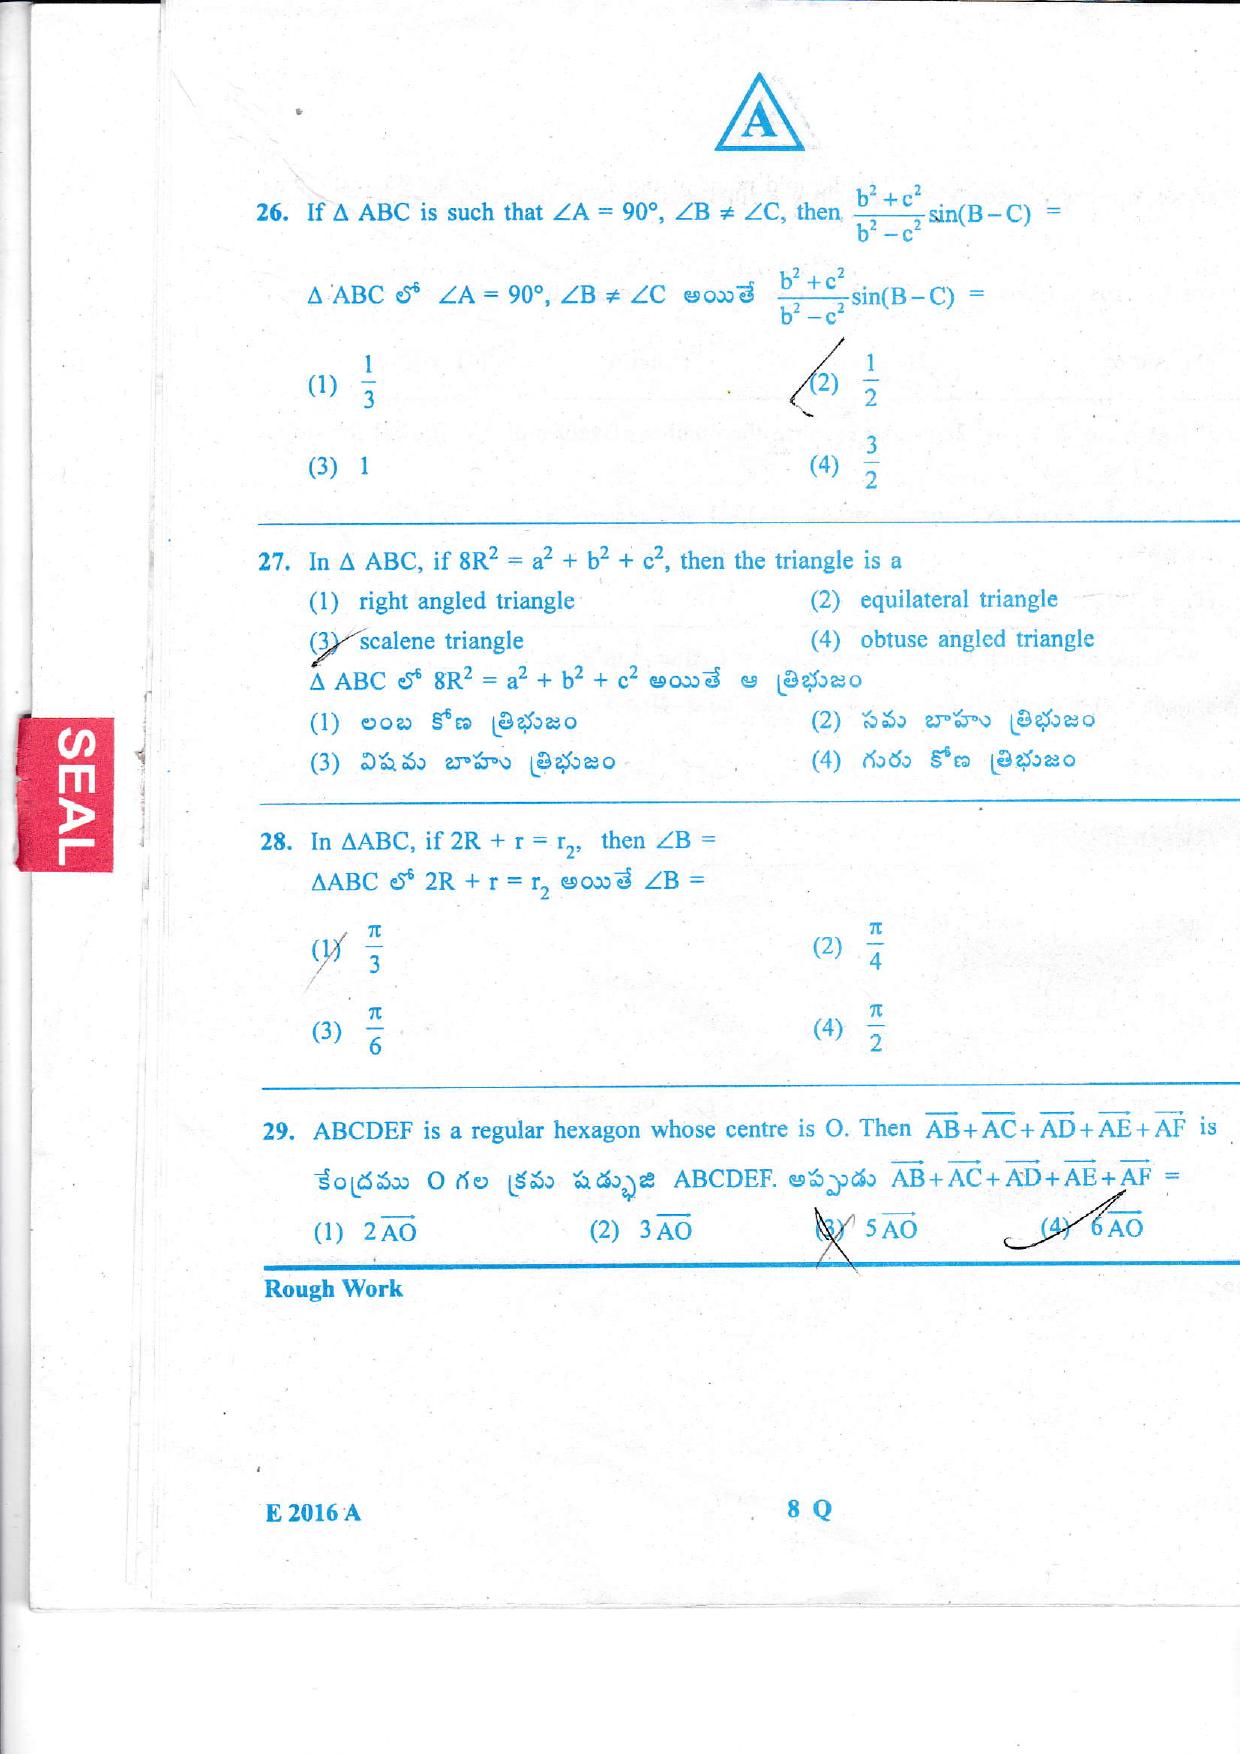 A
26. If Δ ABC is such that ∠A = 90°, ∠B ≠ ∠C, then (b² + c²)/(b² – c²) sin(B – C) =
Δ ABC లో ∠A = 90°, ∠B ≠ ∠C అయితే (b² + c²)/(b² – c²) sin(B – C) =
(1) 1/3 (2) 1/2
(3) 1 (4) 3/2
27. In Δ ABC, if 8R² = a² + b² + c², then the triangle is a
(1) right angled triangle (2) equilateral triangle
(3) scalene triangle (4) obtuse angled triangle
Δ ABC లో 8R² = a² + b² + c² అయితే ఆ త్రిభుజం
(1) లంబ కోణ త్రిభుజం (2) సమ బాహు త్రిభుజం
(3) విషమ బాహు త్రిభుజం (4) గురు కోణ త్రిభుజం
SEAL
28. In ΔABC, if 2R + r = r₂, then ∠B =
ΔABC లో 2R + r = r₂ అయితే ∠B =
(1) π/3 (2) π/4
(3) π/6 (4) π/2
29. ABCDEF is a regular hexagon whose centre is O. Then AB + AC + AD + AE + AF is
కేంద్రము O గల క్రమ షడ్భుజి ABCDEF. అప్పుడు AB + AC + AD + AE + AF =
(1) 2 AO (2) 3 AO (3) 5 AO (4) 6 AO
Rough Work
E 2016 A 8 Q